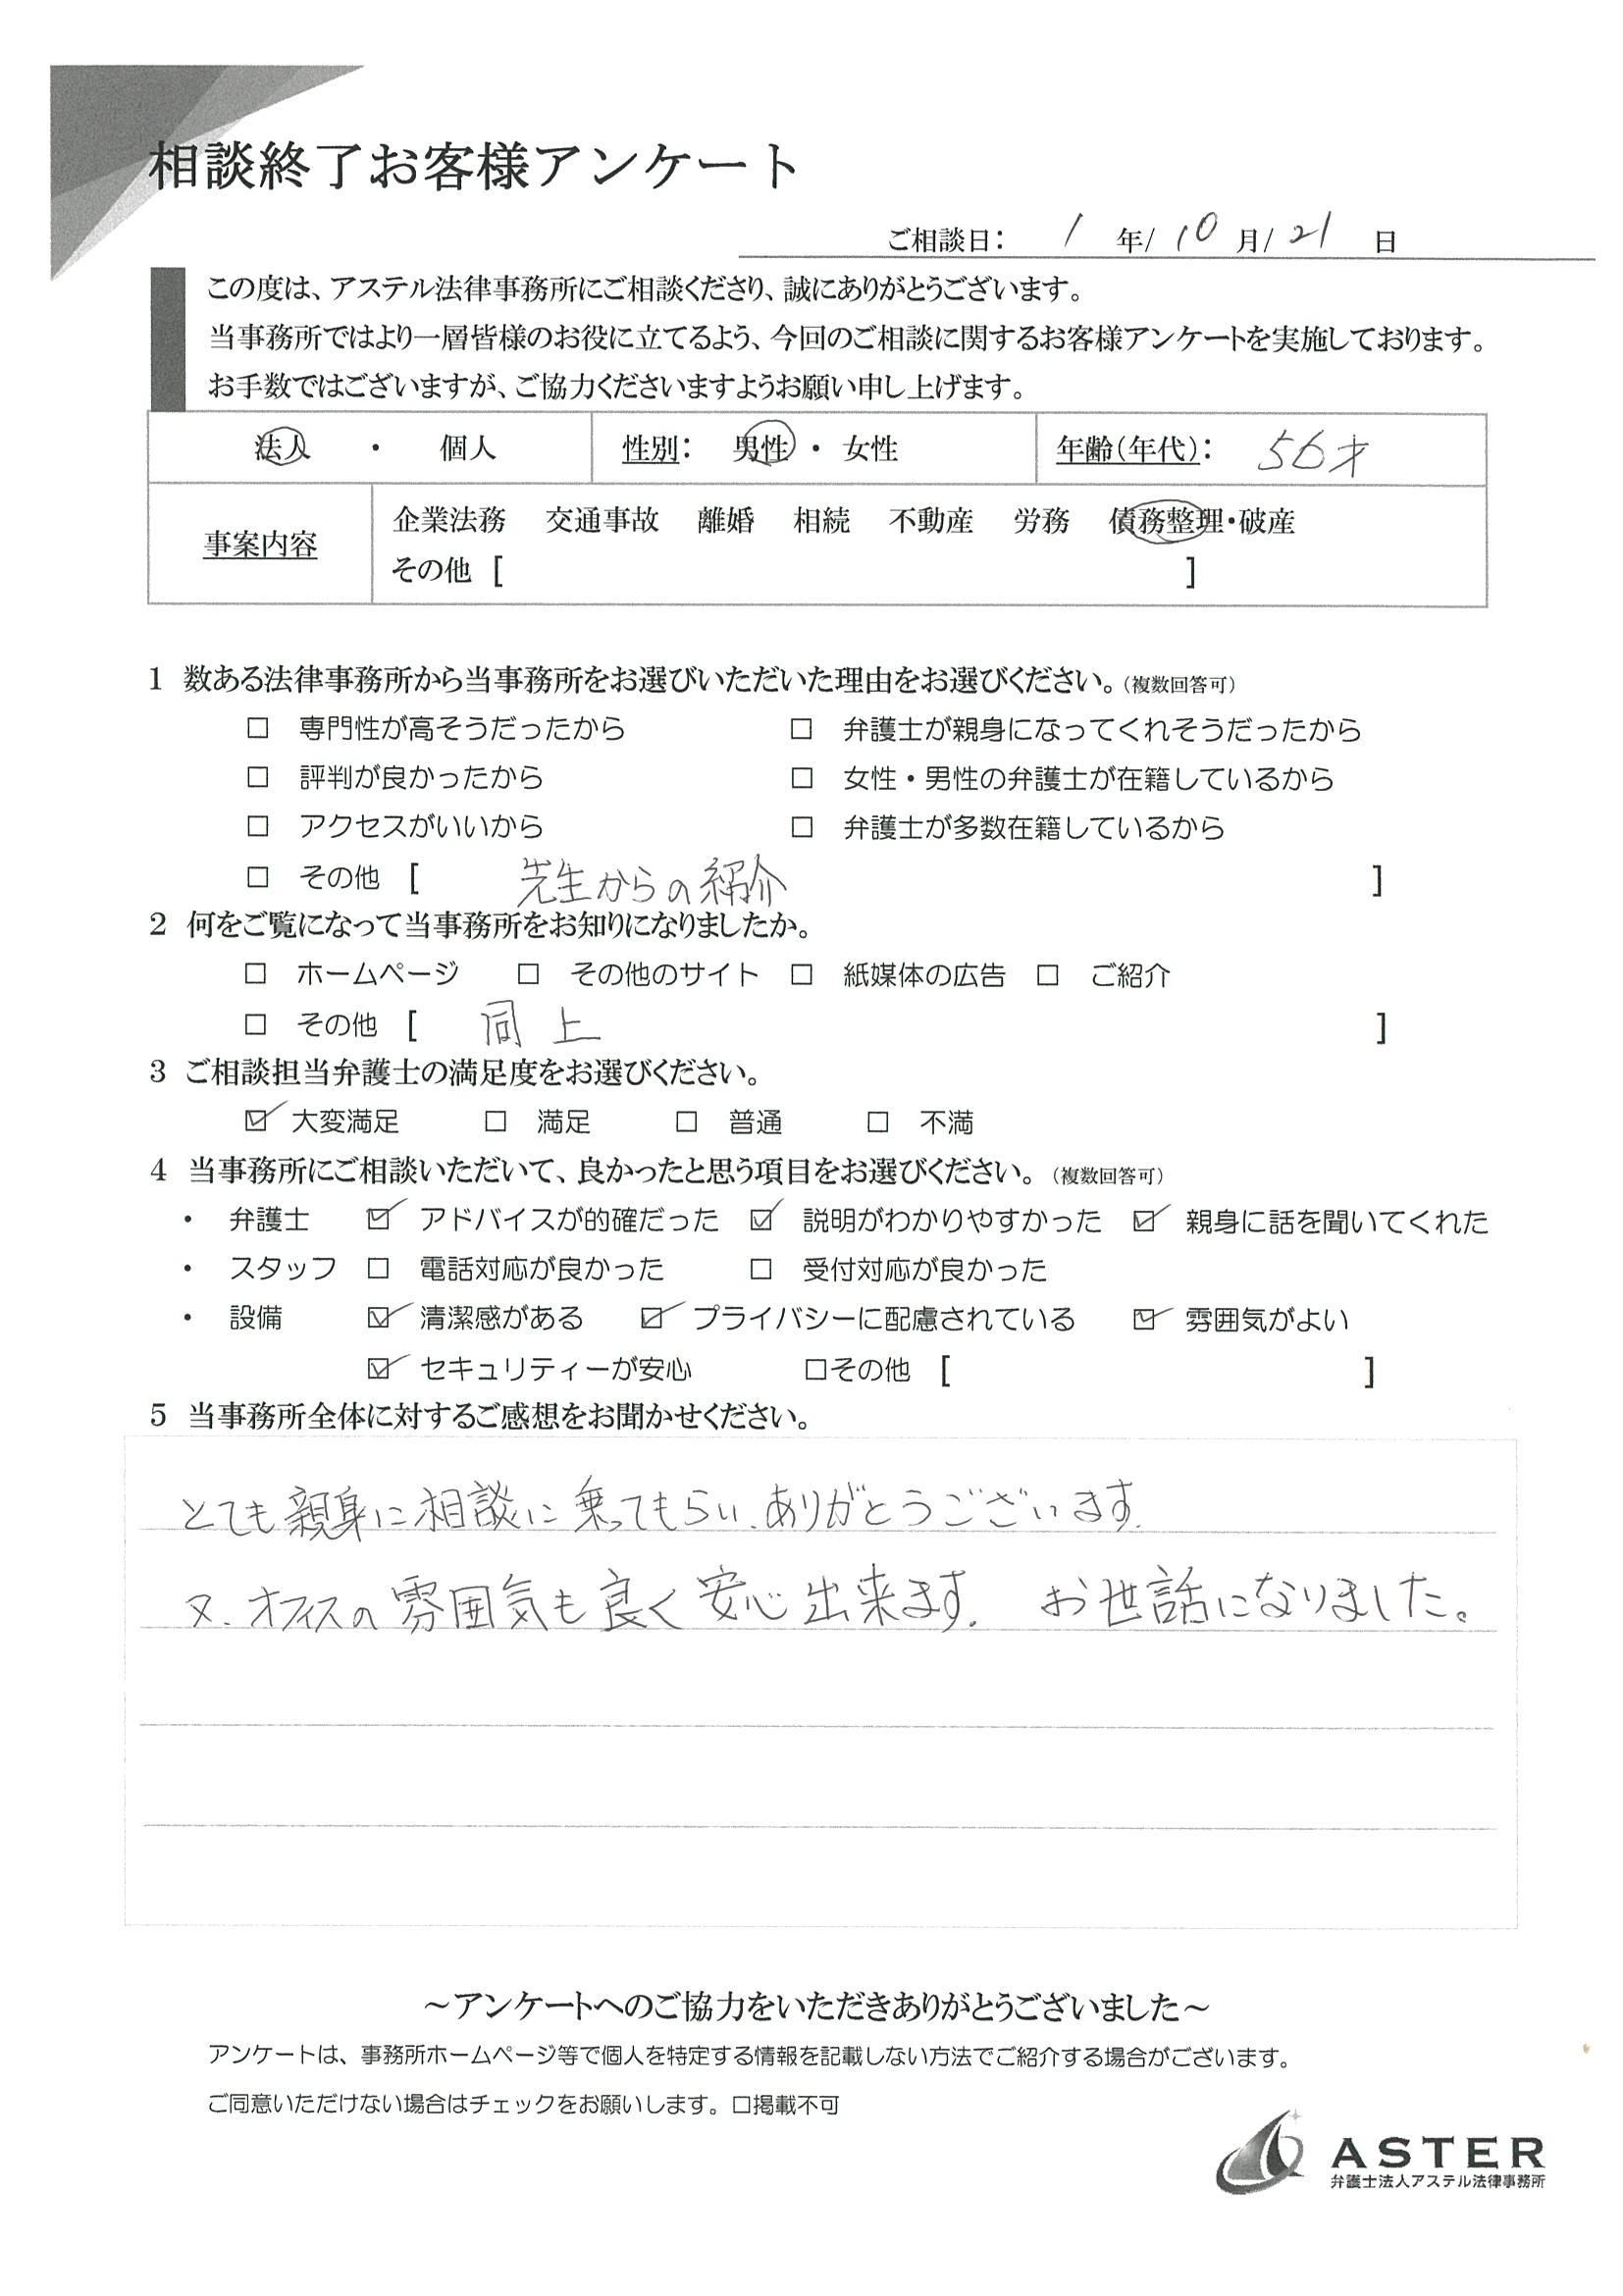 相談終了お客様アンケート
ご相談日： 1 年/ 10 月/ 21 日
この度は、アステル法律事務所にご相談くださり、誠にありがとうございます。
当事務所ではより一層皆様のお役に立てるよう、今回のご相談に関するお客様アンケートを実施しております。
お手数ではございますが、ご協力くださいますようお願い申し上げます。
法人 ・ 個人 性別： 男性 ・ 女性 年齢（年代）： 56才
事案内容 企業法務 交通事故 離婚 相続 不動産 労務 債務整理・破産
その他 [ ]
1 数ある法律事務所から当事務所をお選びいただいた理由をお選びください。（複数回答可）
□ 専門性が高そうだったから □ 弁護士が親身になってくれそうだったから
□ 評判が良かったから □ 女性・男性の弁護士が在籍しているから
□ アクセスがいいから □ 弁護士が多数在籍しているから
□ その他 [ 先生からの紹介 ]
2 何をご覧になって当事務所をお知りになりましたか。
□ ホームページ □ その他のサイト □ 紙媒体の広告 □ ご紹介
□ その他 [ 同上 ]
3 ご相談担当弁護士の満足度をお選びください。
☑ 大変満足 □ 満足 □ 普通 □ 不満
4 当事務所にご相談いただいて、良かったと思う項目をお選びください。（複数回答可）
・ 弁護士 ☑ アドバイスが的確だった ☑ 説明がわかりやすかった ☑ 親身に話を聞いてくれた
・ スタッフ □ 電話対応が良かった □ 受付対応が良かった
・ 設備 ☑ 清潔感がある ☑ プライバシーに配慮されている ☑ 雰囲気がよい
☑ セキュリティーが安心 □その他 [ ]
5 当事務所全体に対するご感想をお聞かせください。
とても親身に相談に乗ってもらい、ありがとうございます。
又、オフィスの雰囲気も良く安心出来ます。 お世話になりました。
～アンケートへのご協力をいただきありがとうございました～
アンケートは、事務所ホームページ等で個人を特定する情報を記載しない方法でご紹介する場合がございます。
ご同意いただけない場合はチェックをお願いします。□掲載不可
ASTER
弁護士法人アステル法律事務所